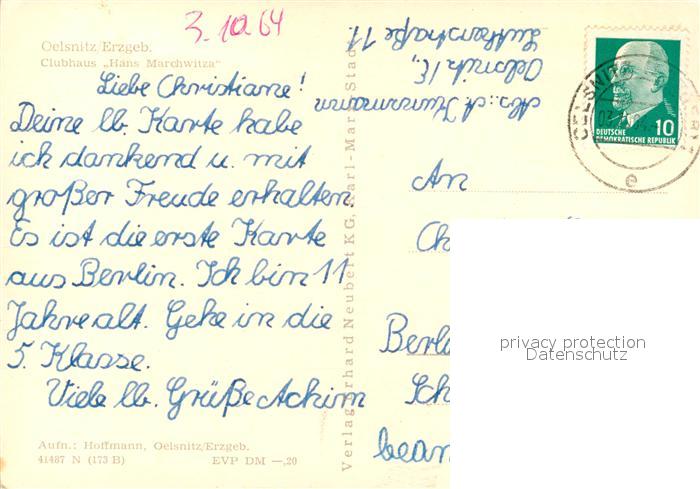 3.10.64
Oelsnitz/Erzgeb.
Clubhaus „Hans Marchwitza"
Liebe Christiane!
Deine lb. Karte habe
ich dankend u. mit
großer Freude erhalten.
Es ist die erste Karte
aus Berlin. Ich bin 11
Jahre alt. Gehe in die
5. Klasse.
Viele lb. Grüße Achim
Aufn.: Hoffmann, Oelsnitz/Erzgeb.
41487 N (173 B) EVP DM —,20
Verlag Gerhard Neubert KG, Karl-Marx-Stadt
Abs.: A.
Oelsnitz/E.,
Lutherstraße 11
DEUTSCHE 10
DEMOKRATISCHE REPUBLIK
OELSNITZ
e
An
Ch
Berli
Sch
bean
privacy protection
Datenschutz